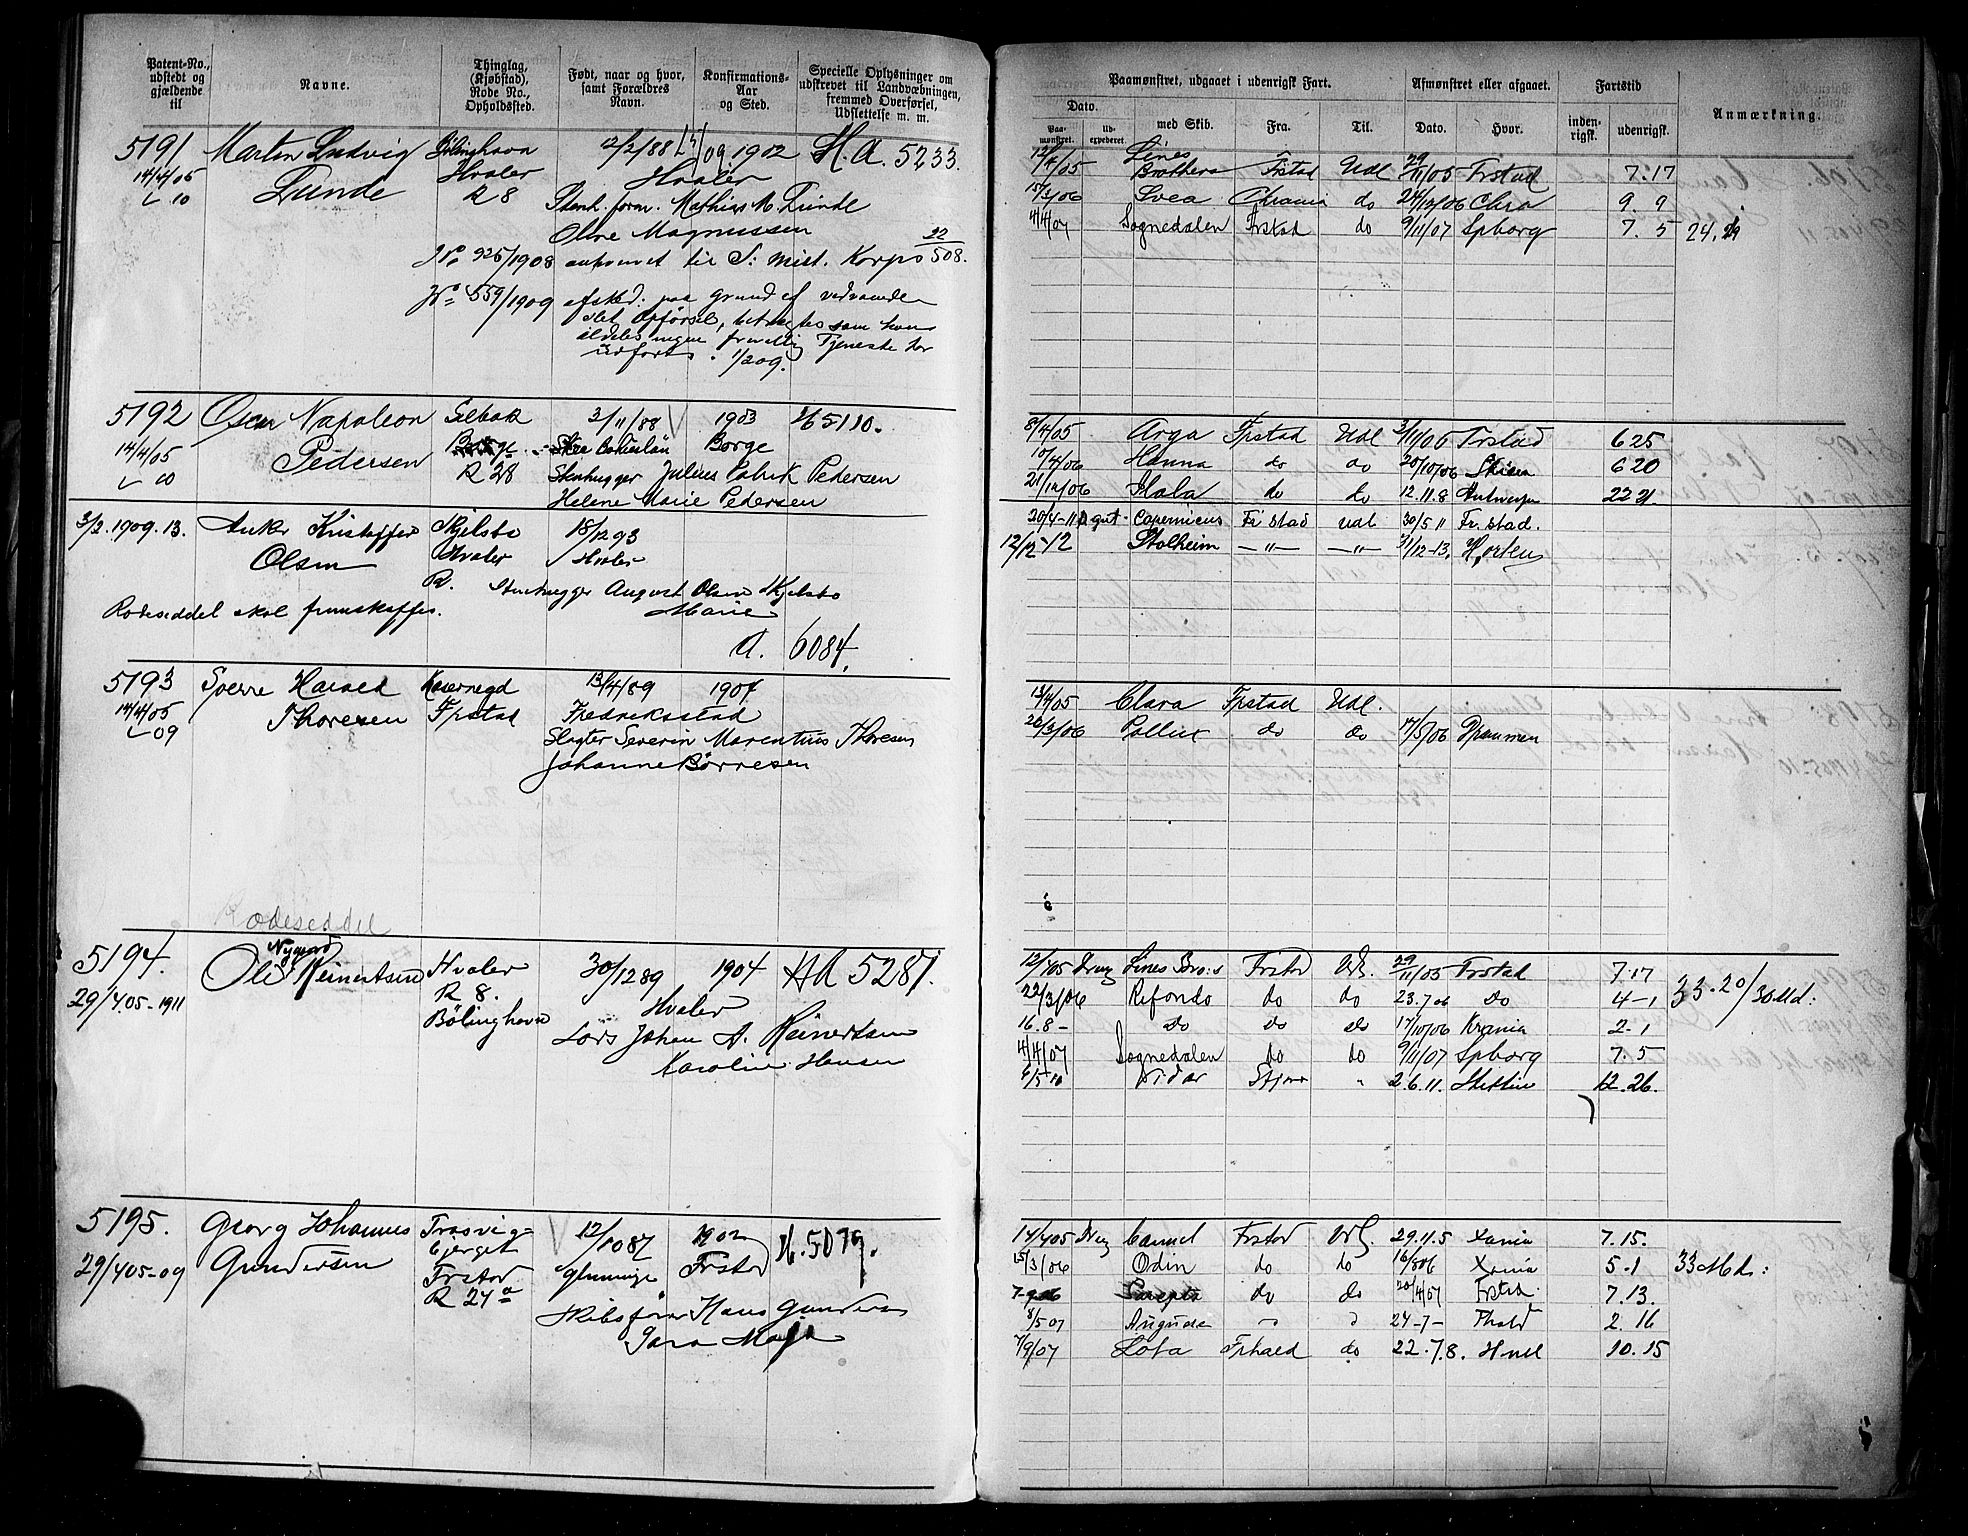 Patent-No., udstedt og gjældende til
Navne.
Thinglag, (Kjøbstad), Rode No., Opholdssted.
Født, naar og hvor, samt Forældres Navn.
Konfirmations-Aar og Sted.
Specielle Oplysninger om udskrevet til Landværbningen, fremmed Overførsel, Udslettelse m. m.
5191 Marten Ludvig Bölinghavn 12/2/88 1902 H. A. 5233.
14/4/05 Lunde Hvaler Hvaler
10 R 8 Stenh. form. Mathias M. Lunde
Oline Magnussen
No 925/1908 antrevet til S: mil. Korps 22/508.
No 559/1909 afsked. paa grund af vedvarende
slet Opførsel, betragtes som han
aldeles ingen frivillig Tjeneste har
udført. 1/2 09.
5192 Oscar Napoleon Selbak 2/11/88 1903 H 5110.
14/4/05 Pedersen Borge Borge
10 R 28 Stenhugger Julius Patrik Pedersen
Helene Marie Pedersen
3/2.1909.13. Anker Kristoffer Skjelsbo 18/12 93
Olsen Hvaler Hvaler
R. Stenhugger August Olsen Skjelsbo
Rodeseddel skal fremskaffes. Marie
A. 6084.
5193 Sverre Harald 13/4/89 1904
14/4/05 Thoresen Frstad Fredriksstad
09 Slagter Severin Marentius Thoresen
Johanne Börresen
Rodeseddel
5194. Ole Nygaard Reinertsen Hvaler 30/12 89 1904 HA 5281.
29/4 05-1911 R 8. Hvaler
Bölinghavn Lars Johan A. Reinertsen
Karoline Hansen
5195. Georg Johannes Trosvig- 12/10 87 1902 H. 5079.
29/4 05-09 Gundersen bjerget Glemminge Frstad
Frstad
R 27a Skibsförer Hans Gundersen
Sara Maja
Paamønstret, udgaaet i udenrigsk Fart.
Afmønstret eller afgaaet.
Fartstid
Anmærkning.
Dato.
Paa-mønstret. Ud-expederet. med Skib. Fra. Til. Dato. Hvor. inden-rigsk. udenrigsk.
12/4/05 Lines Brothers Frstad Udl 29/11/05 Frstad 7.17
15/3/06 Svea Chrania do 24/12/06 Chra 9. 9
4/4/07 Sognedalen Frstad do 9/11/07 Spborg 7. 5 24.
8/4/05 Arga Frstad Udl 3/11/05 Frstad 6 25
10/4/06 Hanna do do 20/10/06 Skien 6 20
21/12/06 do do 12.11.8 Antwerpen 22 21.
20/4-11 Copernicus Fr stad udl 30/5 11 Fr. stad.
12/12-12 Stolheim —"— —"— 31/12-13. Horten
13/4/05 Clara Frstad Udl.
22/3/06 Pollux do do 17/5/06 Drammen
12/4 05 Lines Bro:s Frstad Udl. 29/11/05 Frstad 7.17
22/3/06 Refondo do do 23.7 06 Do 4-1 33.20/30 Md:
16.8- Do Do do 17/10/06 Krania 2-1
4/4/07 Sognedalen do do 9/11/07 Spborg 7. 5
6/5 10 Vidar " 2.6.11. Stettin 12. 26.
14/4 05 Frstad Udl. 29.11.5 Xania 7. 15.
15/3/06 Odin do do 16/8 06 Xania 5-1 33 Md:
7-9 06 Sarepta do do 20/4/07 Frstad. 7. 13.
8/5 07 24-7- Fhald 2. 16
7/9/07 Lota Frhald do 22.7.8. Hull 10. 15